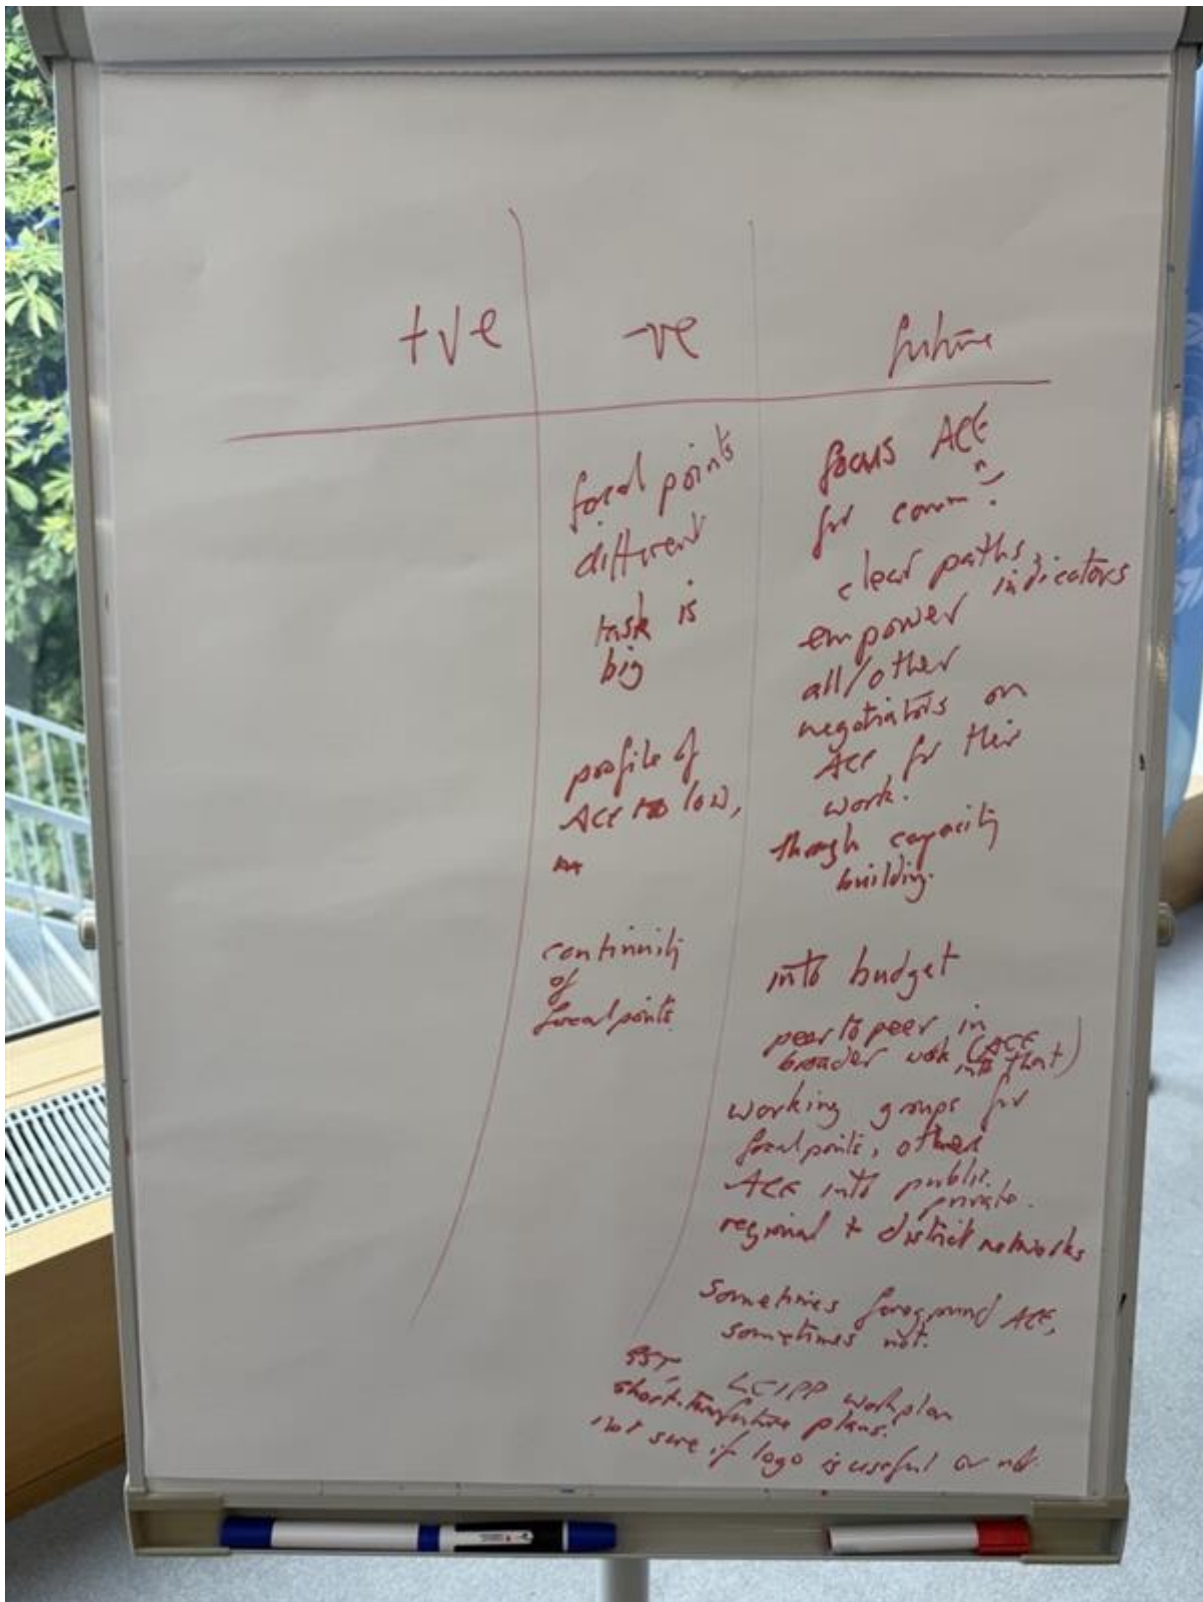 +ve
-ve
future
focal points
different
task is
big
profile of
ACE too low,
continuity
of
focal points
focus ACE
for comm
clear paths,
indicators
empower
all/other
negotiators on
ACE for their
work.
through capacity
building.
into budget
peer to peer in
broader work (ACE
into that)
working groups for
focal points, others
ACE into public.
private.
regional + district networks
sometimes foreground ACE,
sometimes not.
LCIPP workplan
short-term future plans.
not sure if logo is useful or not.